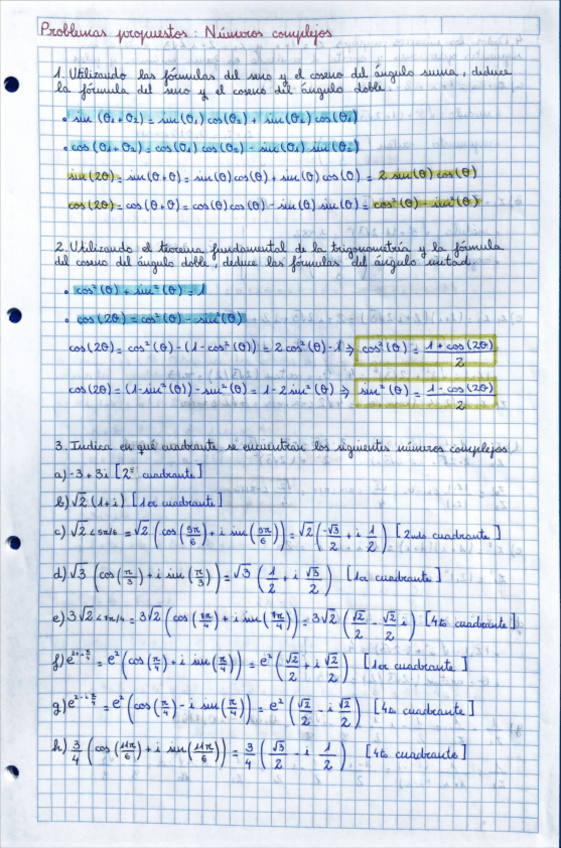 Problemas propuestos: Números complejos
1. Utilizando las fórmulas del seno y el coseno del ángulo suma, deduce
la fórmula del seno y el coseno del ángulo doble.
• sin (θ₁+θ₂) = sin(θ₁) cos(θ₂) + sin(θ₂) cos(θ₁)
• cos (θ₁+θ₂) = cos(θ₁) cos(θ₂) - sin(θ₁) sin(θ₂)
sin(2θ) = sin(θ+θ) = sin(θ) cos(θ) + sin(θ) cos(θ) = 2 sin(θ) cos(θ)
cos(2θ) = cos(θ+θ) = cos(θ) cos(θ) - sin(θ) sin(θ) = cos²(θ) - sin²(θ)
2. Utilizando el teorema fundamental de la trigonometría y la fórmula
del coseno del ángulo doble, deduce las fórmulas del ángulo mitad.
• cos²(θ) + sin²(θ) = 1
• cos(2θ) = cos²(θ) - sin²(θ)
cos(2θ) = cos²(θ) - (1-cos²(θ)) = 2cos²(θ)-1 ⇒ cos²(θ) = (1+cos(2θ))/2
cos(2θ) = (1-sin²(θ)) - sin²(θ) = 1-2sin²(θ) ⇒ sin²(θ) = (1-cos(2θ))/2
3. Indica en qué cuadrante se encuentran los siguientes números complejos
a) -3+3i [2º cuadrante]
b) √2 (1+i) [1er cuadrante]
c) √2 <5π/6 = √2 (cos(5π/6) + i sin(5π/6)) = √2 (-√3/2 + i 1/2) [2ndo cuadrante]
d) √3 (cos(π/3) + i sin(π/3)) = √3 (1/2 + i √3/2) [1er cuadrante]
e) 3√2 <7π/4 = 3√2 (cos(7π/4) + i sin(7π/4)) = 3√2 (√2/2 - √2/2 i) [4to cuadrante]
f) e^(2+i π/4) = e² (cos(π/4) + i sin(π/4)) = e² (√2/2 + i √2/2) [1er cuadrante]
g) e^(2-i π/4) = e² (cos(π/4) - i sin(π/4)) = e² (√2/2 - i √2/2) [4to cuadrante]
h) 3/4 (cos(11π/6) + i sin(11π/6)) = 3/4 (√3/2 - i 1/2) [4to cuadrante]